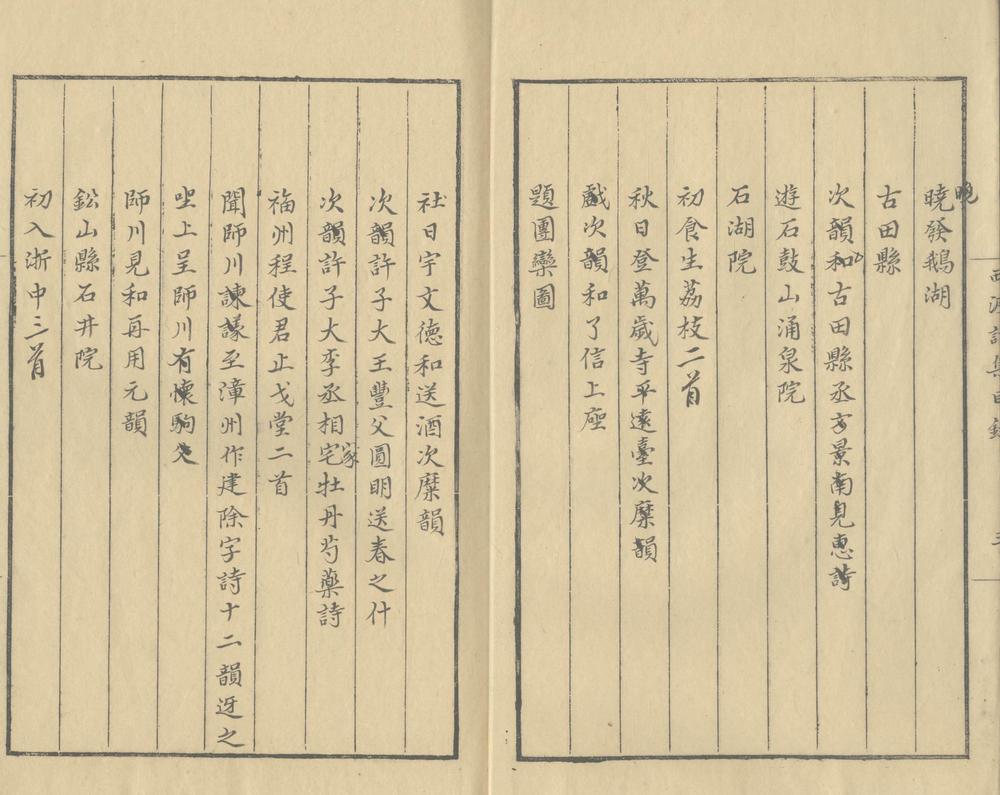 曉發鵝湖
晚
古田縣
次韻和古田縣丞方景南見惠詩
遊石鼓山涌泉院
石湖院
初食生荔枝二首
秋日登萬歲寺平遠臺次糜韻
戲次韻和了信上座
題團欒圖
社日宇文德和送酒次糜韻
次韻許子大王豐父圓明送春之什
次韻許子大李丞相宅牡丹芍藥詩
家
福州程使君止戈堂二首
聞師川諫議至漳州作建除字詩十二韻迓之
坐上呈師川有懷駒父
師川見和再用元韻
鈆山縣石井院
初入浙中三首